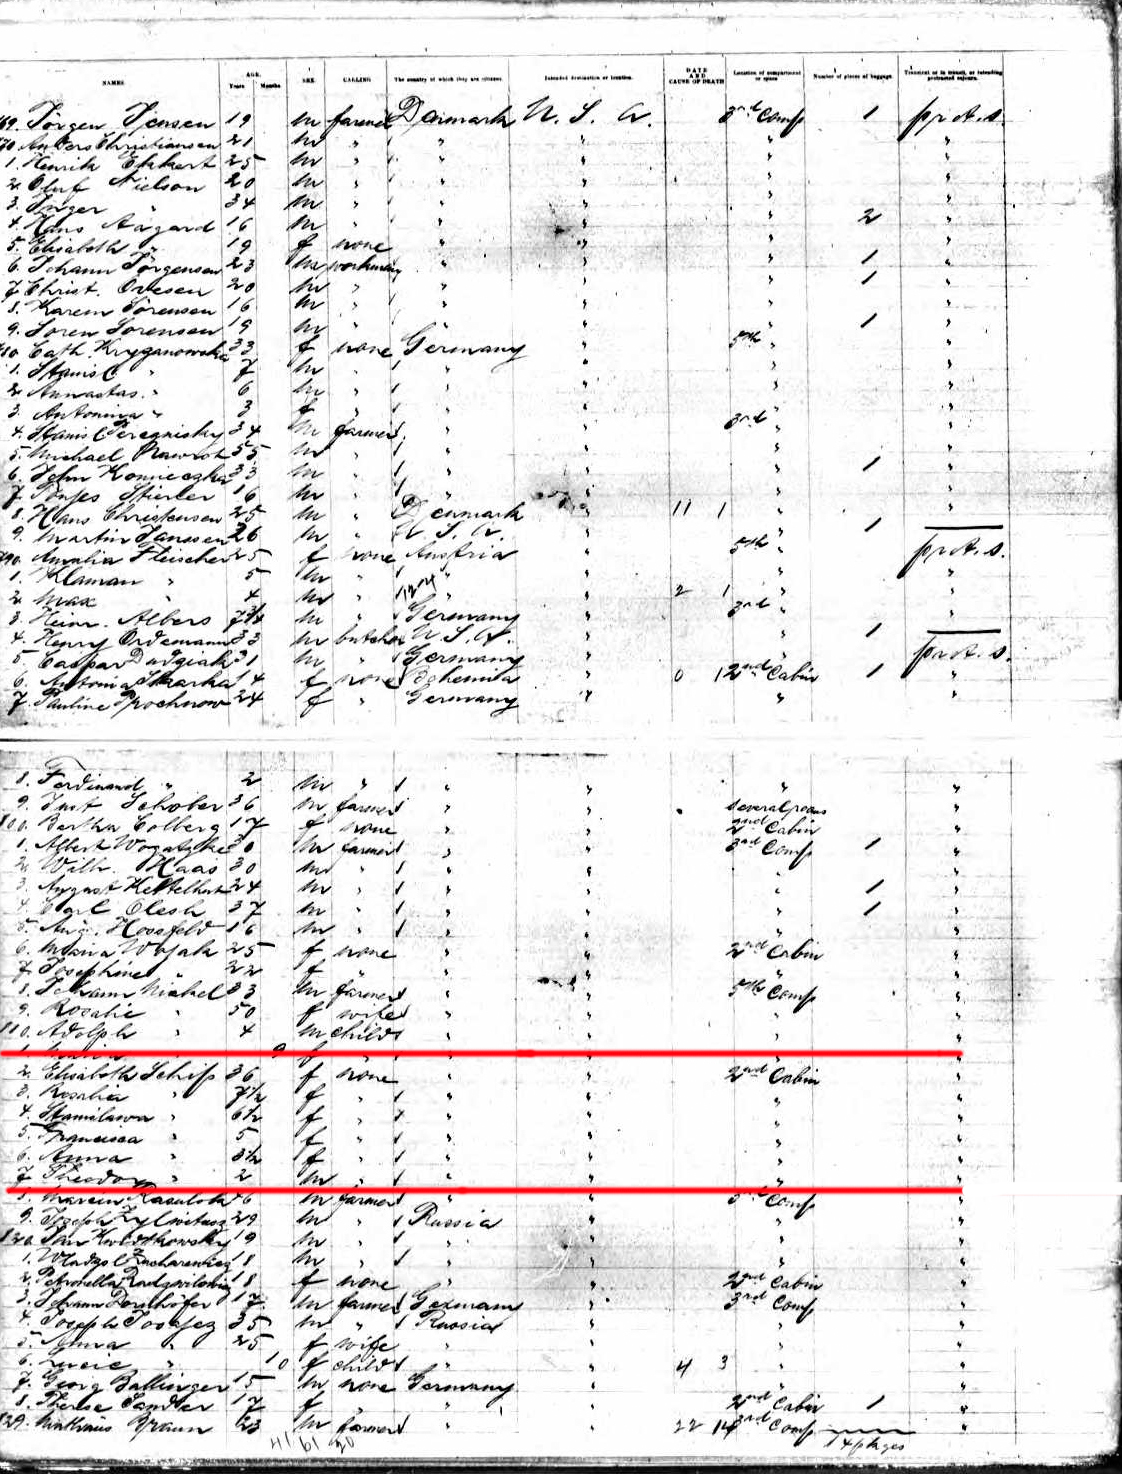 NAMES AGE. Years Months SEX. CALLING The country of which they are citizens. Intended destination or location. DATE AND CAUSE OF DEATH Location of compartment or space Number of pieces of baggage. Transient or in transit, or intending protracted sojourn.
69. Jörgen Jensen 19 m farmer Denmark U. S. A. 3rd Comp 1 prot. s.
70. Anders Christiansen 21 m " " " " "
1. Henrik Ekkert 25 m " " " " "
2. Oluf Nielson 20 m " " " " "
3. Inger " 34 m " " " " "
4. Hans Aagard 16 m " " " " 2 "
5. Elisabeth " 19 f none " " " "
6. Johann Jörgensen 23 m workman " " " 1 "
7. Christ. Ovesen 20 m " " " " 1 "
8. Karem Sörensen 16 m " " " " "
9. Soren Sorensen 19 m " " " " 1 "
80. Cath. Kryganowska 33 f none Germany " 5th " "
1. Stanisl " 7 m " " " " "
2. Annastas. " 6 m " " " " "
3. Antonina " 3 f " " " " "
4. Stanisl 34 m farmer " " 3rd " "
5. Michael Nawrot 55 m " " " " "
6. John Konieczka 33 m " " " " 1 "
7. Stierler 16 m " " " " "
8. Hans Christensen 25 m " Denmark " 11 1 " "
9. Martin Janssen 26 m " U. S. A. " " 1
90. Amalia Fleischer 25 f none Austria " 5th " prot. s.
1. Klaman " 5 m " " " " "
2. Max " 4 m " " " 2 1 " "
3. Heinr. Albers 7 3/4 m " Germany " 3rd " "
4. Henry Ordemann 33 m butcher U. S. A. " " 1
5. Caspar 31 m " Germany " " prot. s.
6. Antonia Skarka 14 f none Bohemia " 0 1 2nd Cabin 1 "
7. Pauline Prochnow 24 f " Germany " " "
8. Ferdinand " 2 m " " " " "
9. Just Schober 36 m farmer " " several rooms "
100. Bertha Colberg 17 f none " " 2nd Cabin "
1. Albert 30 m farmer " " 3rd Comp 1 "
2. Wilh. Haas 30 m " " " " "
3. August Kettelhut 24 m " " " " 1 "
4. Carl Olesh 37 m " " " " 1 "
5. Aug. Hossfeld 16 m " " " " "
6. Maria Wojak 25 f none " " 2nd Cabin "
7. Josephine " 22 f " " " " "
8. Johann Niakel 33 m farmer " " 5th Comp "
9. Rosalie " 50 f wife " " " "
110. Adolph " 4 m child " " " "
1. 9 f " " " "
2. Elisabeth Schif 36 f none " " 2nd Cabin "
3. Rosalia " 7 1/2 f " " " " "
4. Stanislawa " 6 1/2 f " " " " "
5. Francisca " 5 f " " " " "
6. Anna " 3 1/2 f " " " " "
7. Theodor " 2 m " " " " "
8. Marcin 46 m farmer " " Comp "
9. Joseph 29 m " Russia " " "
120. Jan 19 m " " " " "
1. Wladysl 18 m " " " " "
2. Petronella 18 f none " " 2nd Cabin "
3. Johann Dornhöfer 17 m farmer Germany " 3rd Comp "
4. Joseph 35 m " Russia " " "
5. Anna " 25 f wife " " " "
6. " 10 f child " " 4 3 " "
7. Georg Ballinger 15 m none Germany " " "
8. Therese Sandler 17 f " " " 2nd Cabin 1 "
129. Mathäus Braun 23 m farmer " " 22 14 3rd Comp "
41 61 20 14 pkges